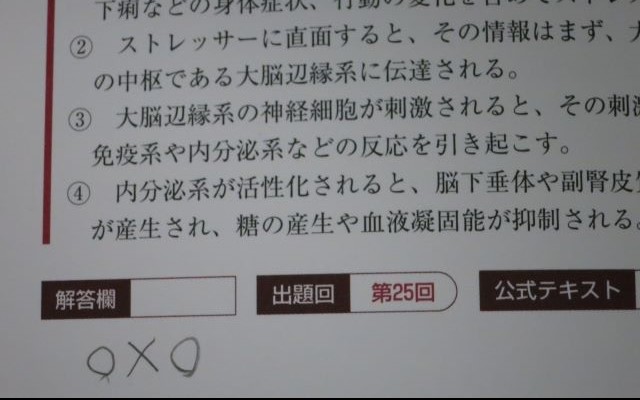 下痢などの身体症状、行動の変化を含めてストレス
② ストレッサーに直面すると、その情報はまず、
の中枢である大脳辺縁系に伝達される。
③ 大脳辺縁系の神経細胞が刺激されると、その刺激
免疫系や内分泌系などの反応を引き起こす。
④ 内分泌系が活性化されると、脳下垂体や副腎皮質
が産生され、糖の産生や血液凝固能が抑制される。
解答欄 出題回 第25回 公式テキスト
○×○